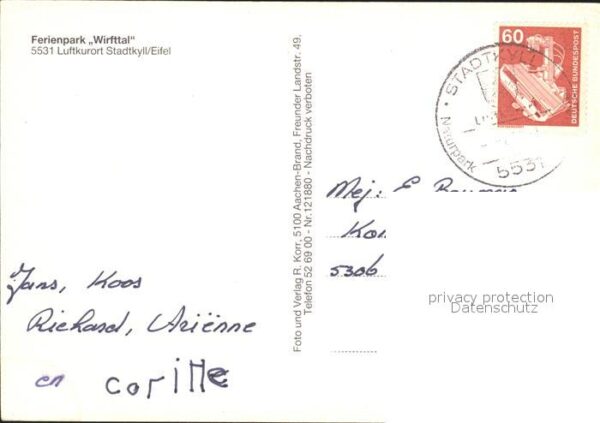 Ferienpark „Wirfttal"
5531 Luftkurort Stadtkyll/Eifel
60
DEUTSCHE BUNDESPOST
STADTKYLL
Naturpark
5531
Foto und Verlag R. Korr, 5100 Aachen-Brand, Freunder Landstr. 49.
Telefon 52 69 00 - Nr. 121880 - Nachdruck verboten
Mej: E
5306
privacy protection
Datenschutz
Jans, Koos
Richard, Ariënne
en corine